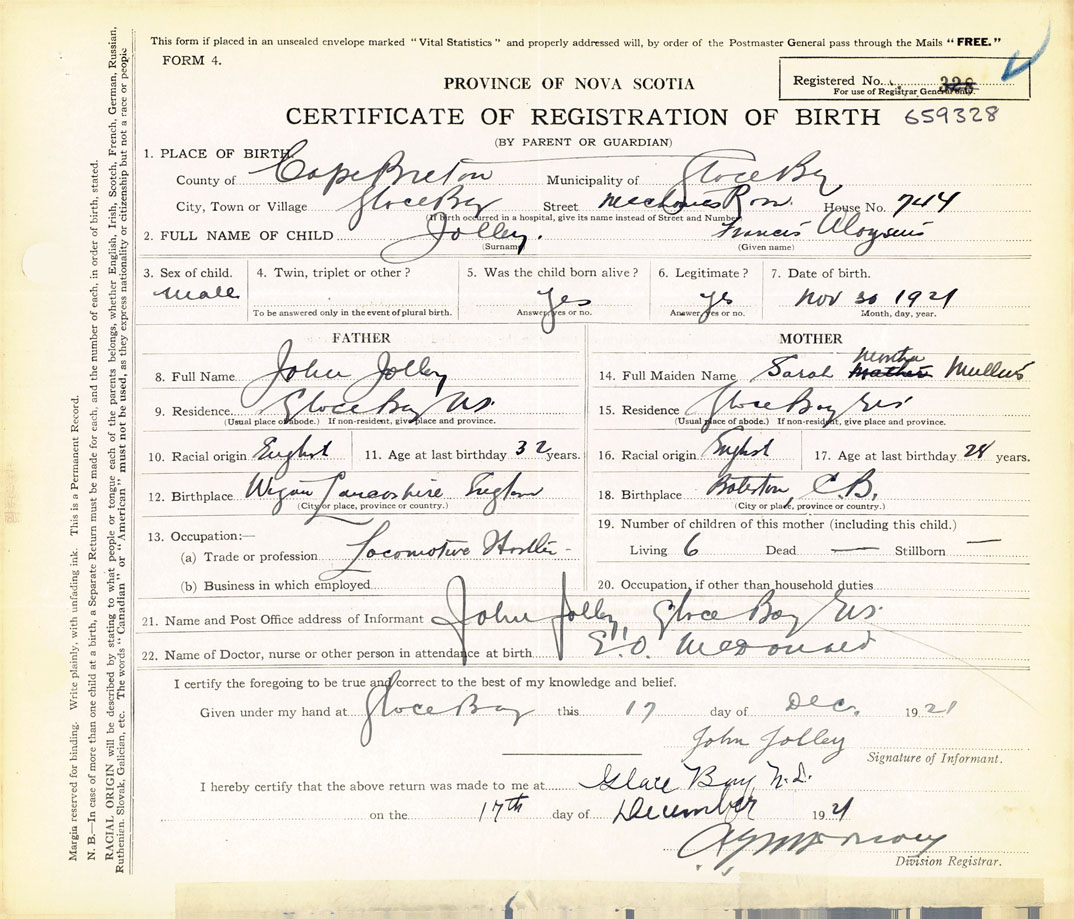 This form if placed in an unsealed envelope marked "Vital Statistics" and properly addressed will, by order of the Postmaster General pass through the Mails "FREE."
FORM 4.
Registered No. 328
For use of Registrar General only.
PROVINCE OF NOVA SCOTIA
CERTIFICATE OF REGISTRATION OF BIRTH 659328
(BY PARENT OR GUARDIAN)
1. PLACE OF BIRTH
County of Cape Breton Municipality of Glace Bay
City, Town or Village Glace Bay Street Row. House No. 744
(If birth occurred in a hospital, give its name instead of Street and Number)
2. FULL NAME OF CHILD Jolley. Francis Aloysius
(Surname) (Given name)
3. Sex of child. 4. Twin, triplet or other? 5. Was the child born alive? 6. Legitimate? 7. Date of birth.
Male Yes Yes Nov 30 1921
To be answered only in the event of plural birth. Answer yes or no. Answer yes or no. Month, day, year.
FATHER MOTHER
8. Full Name John Jolley 14. Full Maiden Name Sarah Martha Mullins
9. Residence Glace Bay NS. 15. Residence Glace Bay NS
(Usual place of abode.) If non-resident, give place and province. (Usual place of abode.) If non-resident, give place and province.
10. Racial origin English 11. Age at last birthday 32 years. 16. Racial origin English 17. Age at last birthday 28 years.
12. Birthplace Wigan Lancashire England 18. Birthplace C.B.
(City or place, province or country.) (City or place, province or country.)
13. Occupation:— 19. Number of children of this mother (including this child.)
(a) Trade or profession Locomotive Hostler - Living 6 Dead — Stillborn —
(b) Business in which employed 20. Occupation, if other than household duties
21. Name and Post Office address of Informant John Jolley, Glace Bay NS.
22. Name of Doctor, nurse or other person in attendance at birth E. O. McDonald
I certify the foregoing to be true and correct to the best of my knowledge and belief.
Given under my hand at Glace Bay this 17 day of Dec. 1921
John Jolley
Signature of Informant.
I hereby certify that the above return was made to me at Glace Bay N.S.
on the 17th day of December 1921
Division Registrar.
Margin reserved for binding. Write plainly, with unfading ink. This is a Permanent Record.
N. B.—In case of more than one child at a birth, a Separate Return must be made for each, and the number of each, in order of birth, stated.
RACIAL ORIGIN will be described by stating to what people or tongue each of the parents belongs, whether English, Irish, Scotch, French, German, Russian,
Ruthenian, Slovak, Galician, etc. The words "Canadian" or "American" must not be used, as they express nationality or citizenship but not a race or people